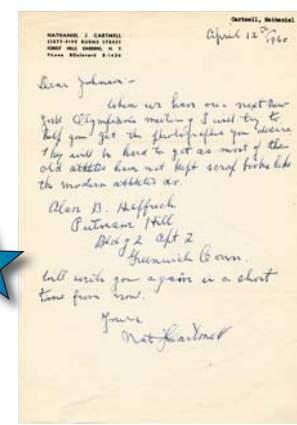 Cartmell, Nathaniel
NATHANIEL J CARTMELL
SIXTY-FIVE BURNS STREET
FOREST HILLS GARDENS, N. Y.
Phone BOulevard 8-1436
April 12th 1960
Dear Johnson -
When we have our next New
York Olympians meeting I will try to
help you get the photographs you desire
They will be hard to get as most of the
old athletes have not kept scrap books like
the modern athletes do.
Alan B. Helffrich
Putnam Hill
Bldg 2 Apt 2
Greenwich Conn.
Will write you again in a short
time from now.
Yours
Nat J Cartmell